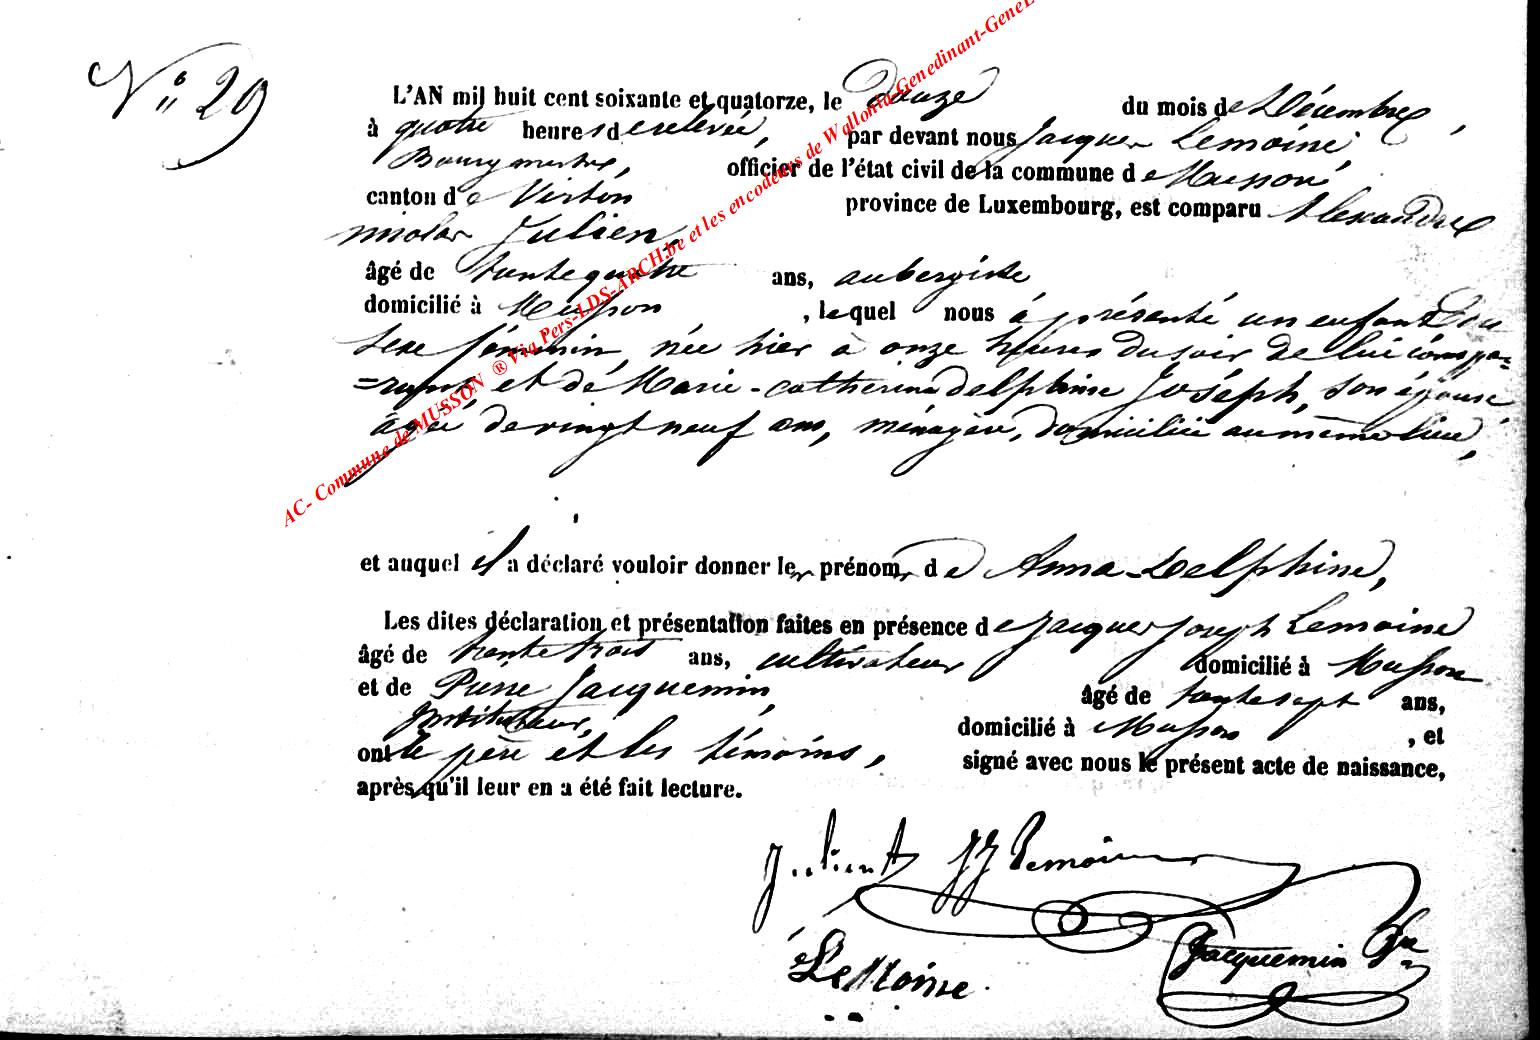 N° 29
L'AN mil huit cent soixante et quatorze, le douze du mois de Décembre,
à quatre heures de relevée, par devant nous Jacques Lemoine
Bourgmestre, officier de l'état civil de la commune de Musson,
canton de Virton province de Luxembourg, est comparu Alexandre
nicolas Julien,
âgé de trente quatre ans, aubergiste
domicilié à Musson, lequel nous à présenté un enfant du
sexe féminin, née hier à onze heures du soir de lui compa=
=rant et de Marie-catherine delphine Joséph, son épouse,
âgée de vingt neuf ans, ménagère, domiciliée au même lieu,
et auquel il a déclaré vouloir donner les prénoms de Anna-Delphine,
Les dites déclaration et présentation faites en présence de Jacques Joseph Lemoine
âgé de trente trois ans, cultivateur domicilié à Musson
et de Pierre Jacquemin, âgé de trente sept ans,
Instituteur, domicilié à Musson, et
ont le père et les témoins, signé avec nous le présent acte de naissance,
après qu'il leur en a été fait lecture.
Julien A JJ Lemoine
LeMoine Jacquemin
AC- Commune de MUSSON ® Via Pers-LDS-ARCH.be et les encodeurs de Wallonia-Genedinant-GeneL